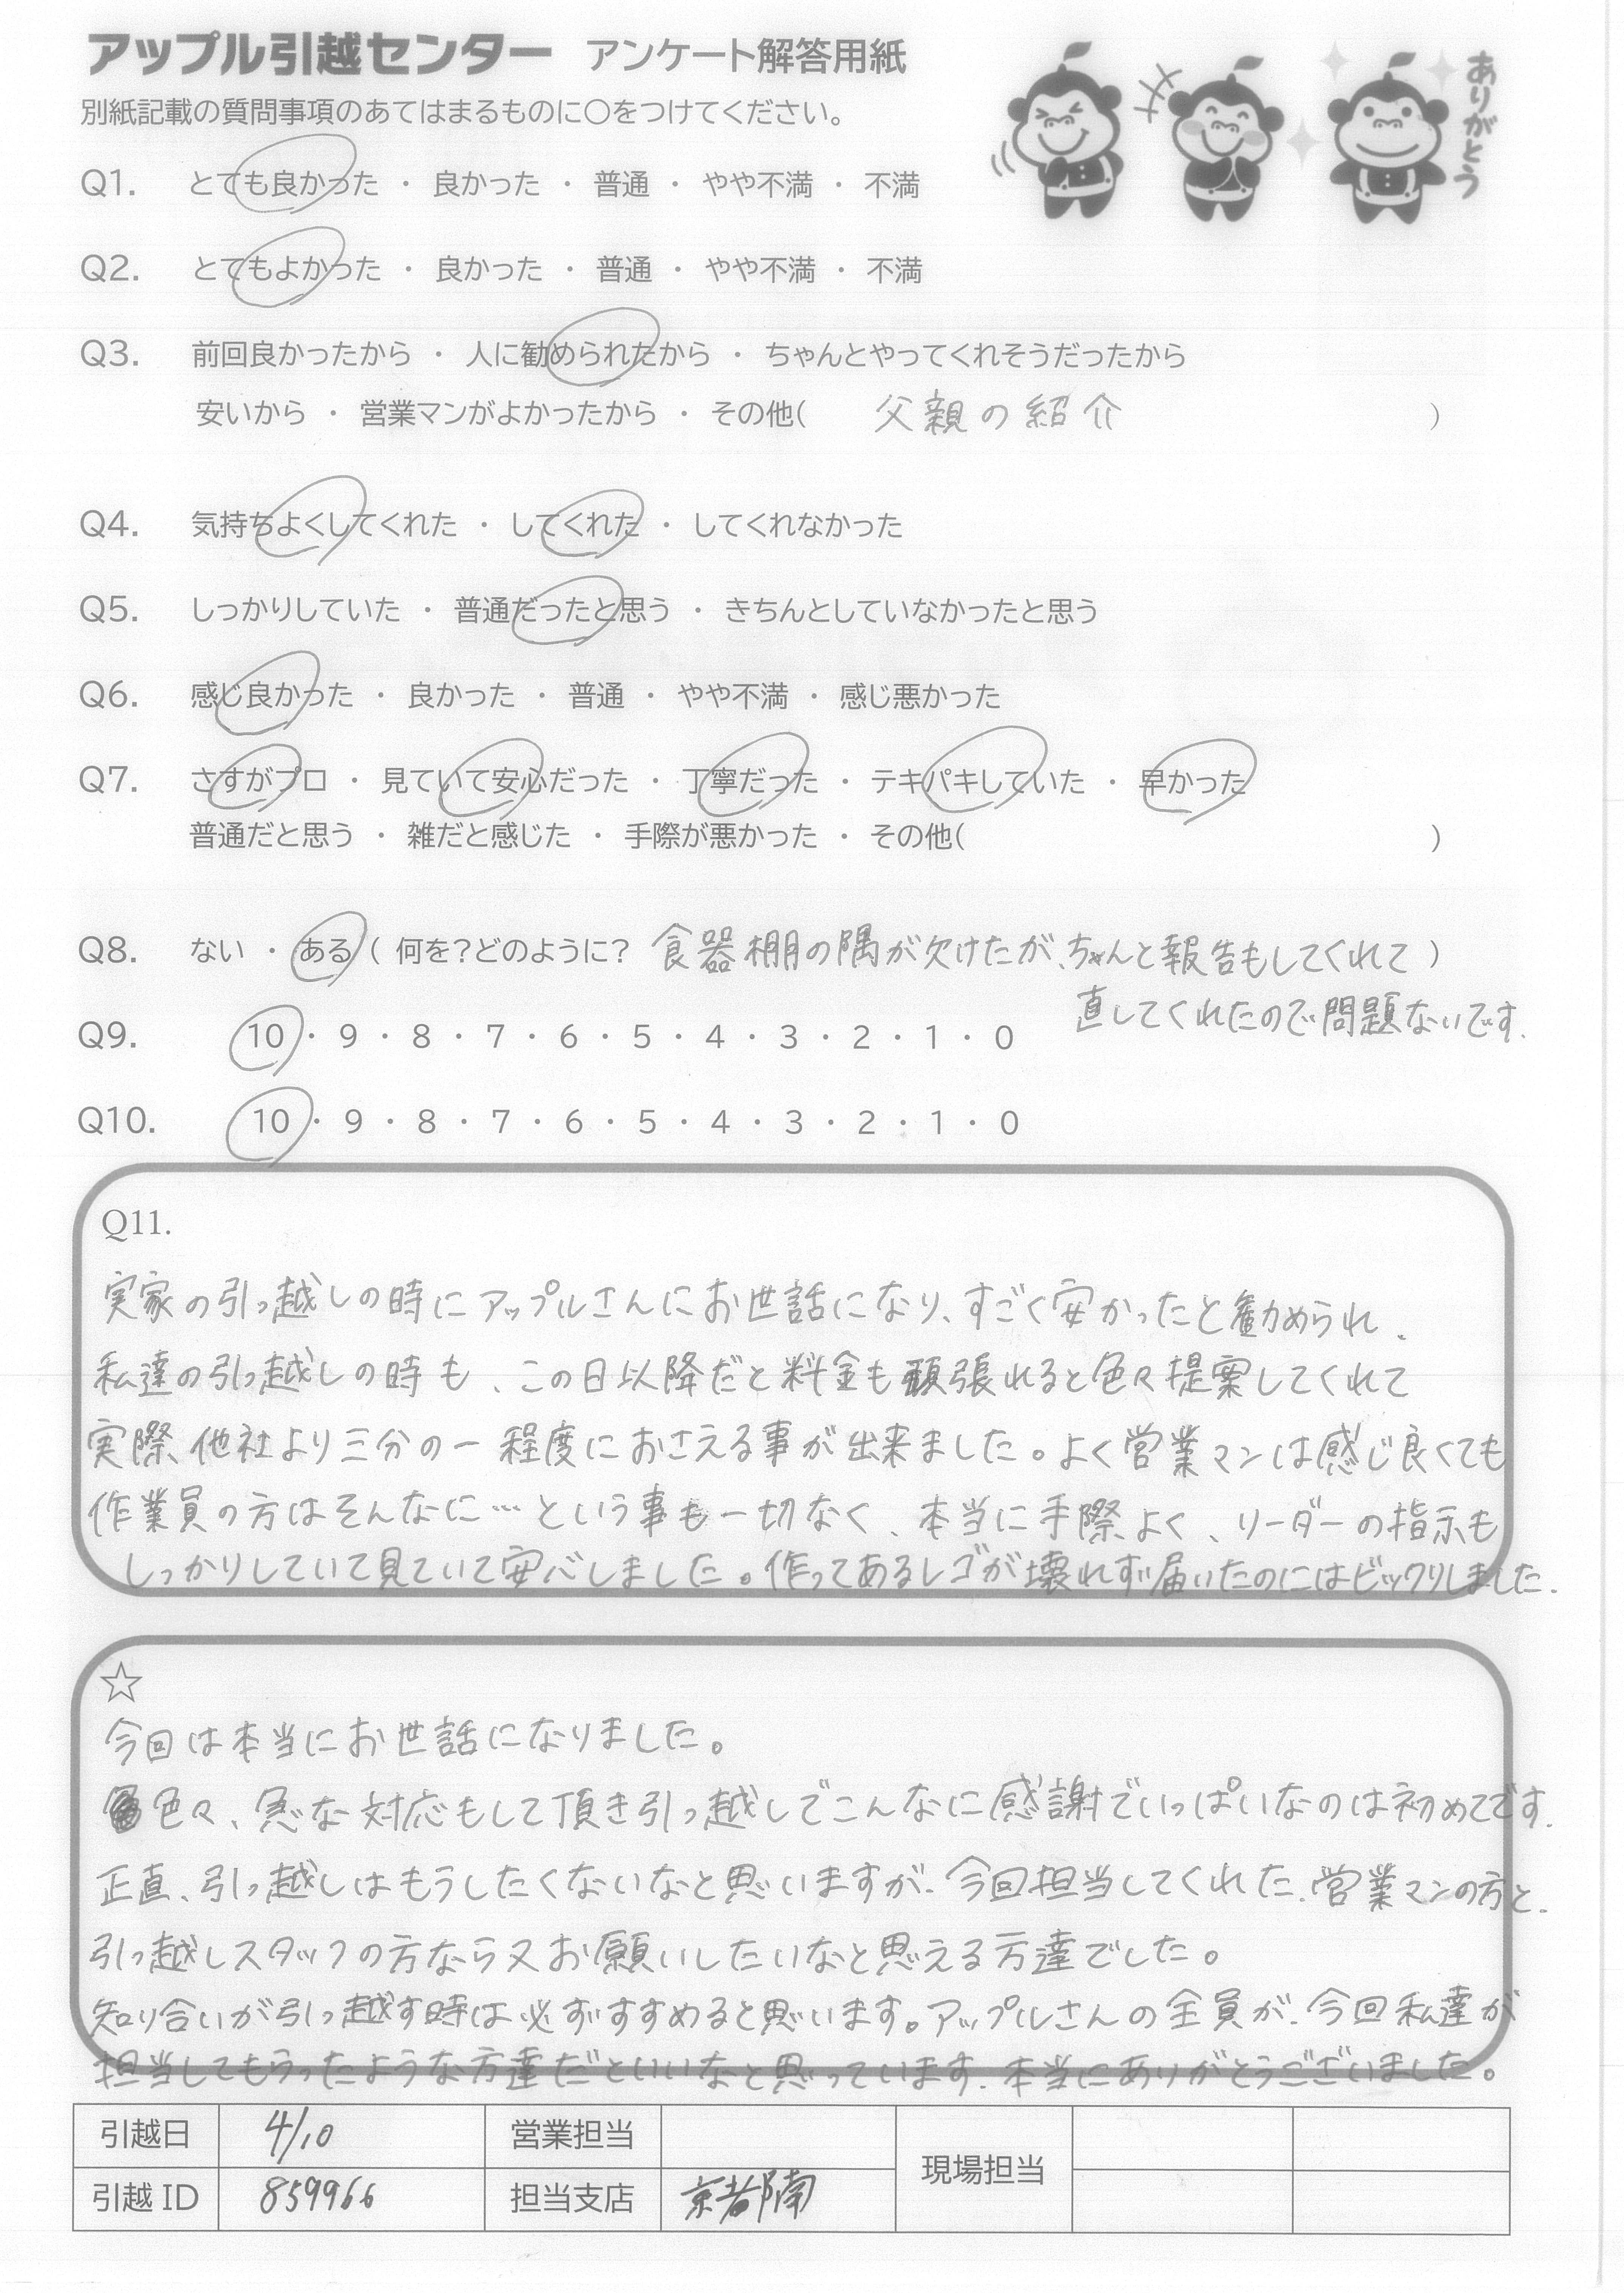 アップル引越センター アンケート解答用紙
ありがとう
別紙記載の質問事項のあてはまるものに〇をつけてください。
Q1. とても良かった ・ 良かった ・ 普通 ・ やや不満 ・ 不満
Q2. とてもよかった ・ 良かった ・ 普通 ・ やや不満 ・ 不満
Q3. 前回良かったから ・ 人に勧められたから ・ ちゃんとやってくれそうだったから
安いから ・ 営業マンがよかったから ・ その他( 父親の紹介 )
Q4. 気持ちよくしてくれた ・ してくれた ・ してくれなかった
Q5. しっかりしていた ・ 普通だったと思う ・ きちんとしていなかったと思う
Q6. 感じ良かった ・ 良かった ・ 普通 ・ やや不満 ・ 感じ悪かった
Q7. さすがプロ ・ 見ていて安心だった ・ 丁寧だった ・ テキパキしていた ・ 早かった
普通だと思う ・ 雑だと感じた ・ 手際が悪かった ・ その他( )
Q8. ない ・ ある ( 何を?どのように? 食器棚の隅が欠けたが、ちゃんと報告もしてくれて )
直してくれたので問題ないです.
Q9. 10・9・8・7・6・5・4・3・2・1・0
Q10. 10・9・8・7・6・5・4・3・2・1・0
Q11.
実家の引っ越しの時にアップルさんにお世話になり、すごく安かったと勧められ、
私達の引っ越しの時も、この日以降だと料金も頑張れると色々提案してくれて
実際、他社より三分の一程度におさえる事が出来ました。よく営業マンは感じ良くても
作業員の方はそんなに…という事も一切なく、本当に手際よく、リーダーの指示も
しっかりしていて見ていて安心しました。作ってあるレゴが壊れず届いたのにはビックリしました.
☆
今回は本当にお世話になりました。
色々、急な対応もして頂き引っ越しでこんなに感謝でいっぱいなのは初めてです.
正直、引っ越しはもうしたくないなと思いますが、今回担当してくれた、営業マンの方と、
引っ越しスタッフの方なら又お願いしたいなと思える方達でした。
知り合いが引っ越す時は必ずすすめると思います。アップルさんの全員が、今回私達が
担当してもらったような方達だといいなと思っています. 本当にありがとうございました。
引越日 4/10 営業担当 現場担当
引越ID 859966 担当支店 京都南